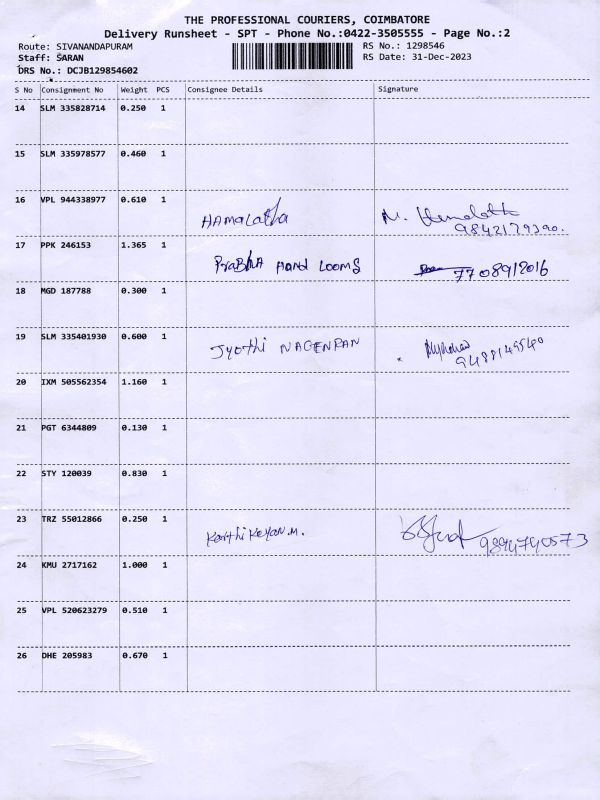 THE PROFESSIONAL COURIERS, COIMBATORE
Delivery Runsheet - SPT - Phone No.:0422-3505555 - Page No.:2
Route: SIVANANDAPURAM RS No.: 1298546
Staff: SARAN RS Date: 31-Dec-2023
DRS No.: DCJB129854602
S No Consignment No Weight PCS Consignee Details Signature
14 SLM 335828714 0.250 1
15 SLM 335978577 0.460 1
16 VPL 944338977 0.610 1 HAMALATHA N. Hemalatha
9842179390.
17 PPK 246153 1.365 1 PRABHA HAND LOOMS 7708912016
18 MGD 187788 0.300 1
19 SLM 335401930 0.600 1 Jyothi NAGENRAN
9488149540
20 IXM 505562354 1.160 1
21 PGT 6344809 0.130 1
22 STY 120039 0.830 1
23 TRZ 55012866 0.250 1 Karthikeyan.M. 9894740573
24 KMU 2717162 1.000 1
25 VPL 520623279 0.510 1
26 DHE 205983 0.670 1